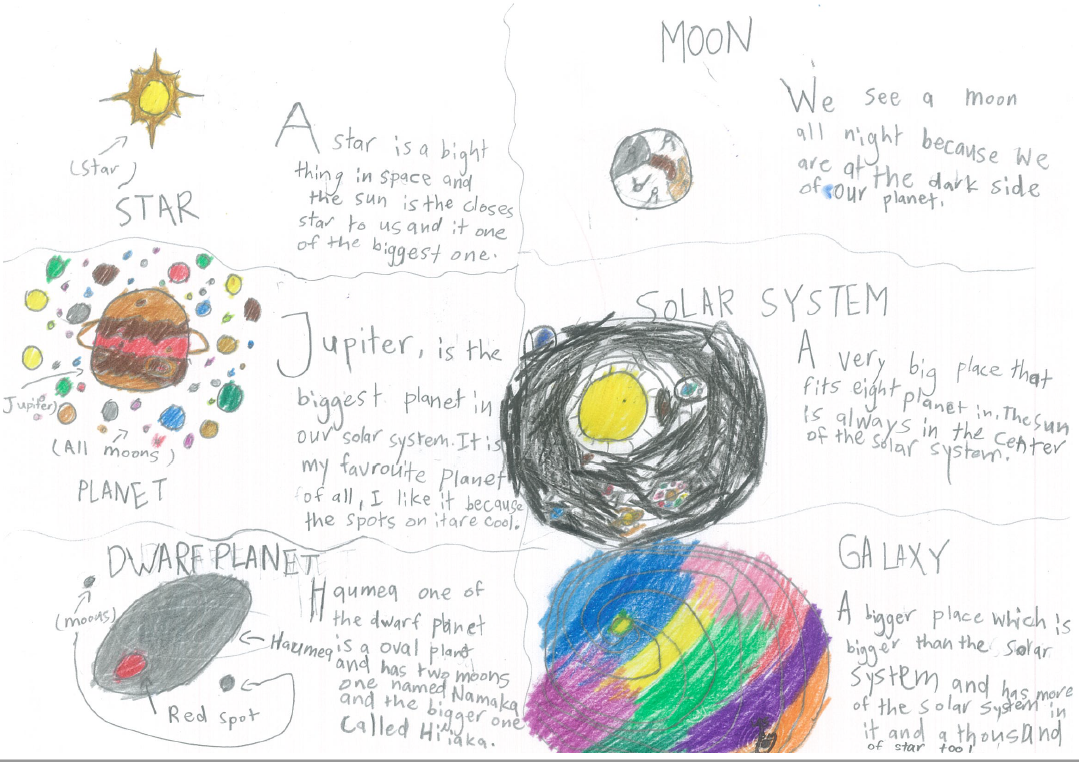 (Star)
STAR
A star is a bight
thing in space and
the sun is the closes
star to us and it one
of the biggest one.
MOON
We see a moon
all night because we
are at the dark side
of our planet.
Jupiter)
(All moons)
PLANET
Jupiter, is the
biggest planet in
our solar system. It is
my favroute planet
of all, I like it because
the spots on it are cool.
SOLAR SYSTEM
A very big place that
fits eight planet in. The sun
is always in the center
of the solar system.
DWARF PLANET
(moons)
Haumea
Red spot
Haumea one of
the dwarf planet
is a oval plant
and has two moons
one named Namaka
and the bigger one
Called Hi'iaka.
GALAXY
A bigger place which is
bigger than the solar
system and has more
of the solar system in
it and a thousand
of star too!